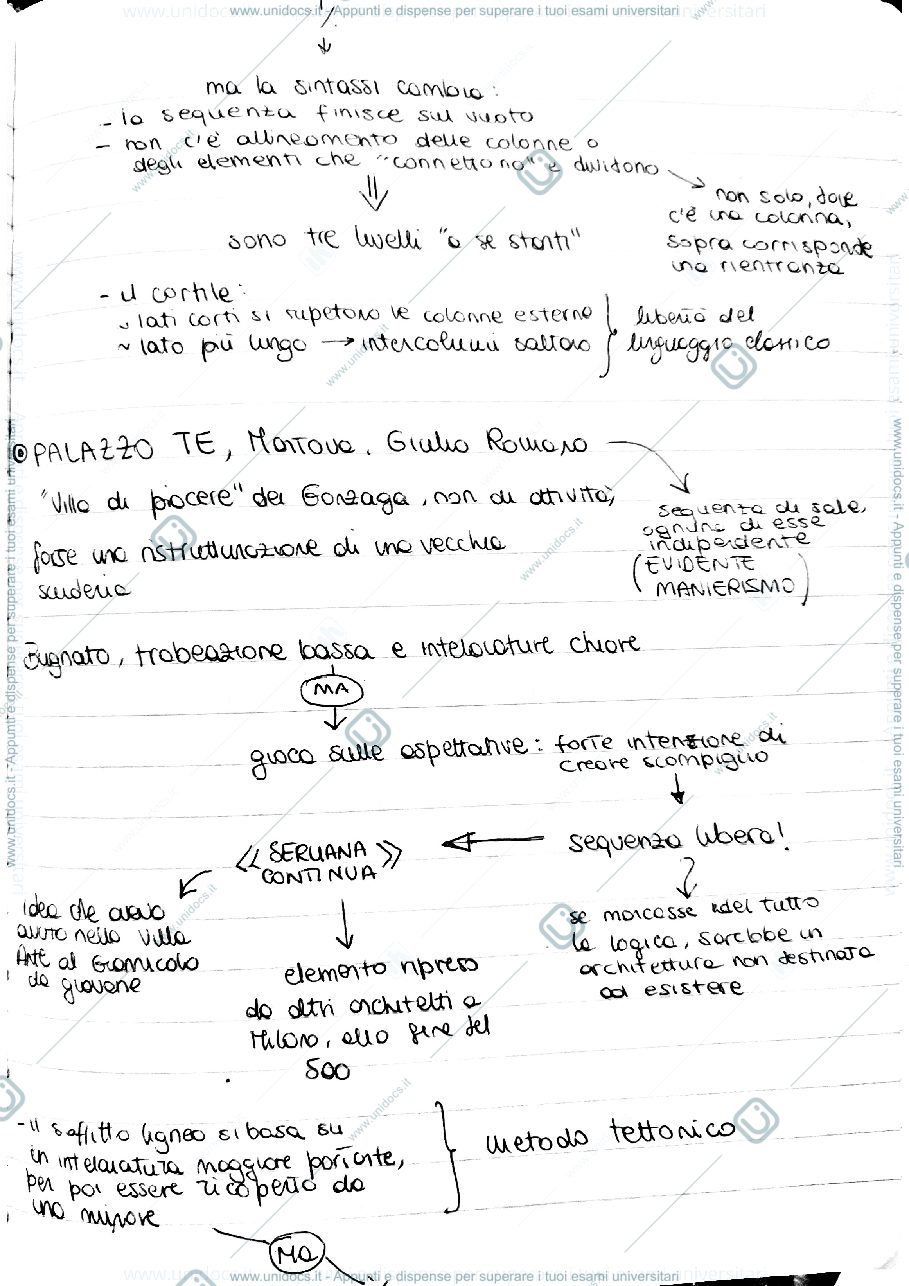 www.unidocs.it - Appunti e dispense per superare i tuoi esami universitari
ma la sintassi cambia:
- la sequenza finisce sul vuoto
- non c'è allineamento delle colonne o
degli elementi che "connettono" e dividono
non solo, dove
c'è una colonna,
sopra corrisponde
una rientranza
sono tre livelli "a se stanti"
- il cortile:
~ lati corti si ripetono le colonne esterne
~ lato più lungo → intercolumni saltano
libertà del
linguaggio classico
PALAZZO TE, Mantova, Giulio Romano
"Villa di piacere" dei Gonzaga, non di attività,
forse una ristrutturazione di una vecchia
scuderia
sequenza di sale,
ognuna di esse
indipendente
(EVIDENTE
MANIERISMO)
Bugnato, trabeazione bassa e intelaiature chiare
MA
gioco sulle aspettative: forte intenzione di
creare scompiglio
sequenza libera!
<< SERLIANA >>
CONTINUA
idea che aveva
avuto nella Villa
Ante al Gianicolo
da giovane
elemento ripreso
da altri architetti a
Milano, alla fine del
500
se mancasse del tutto
la logica, sarebbe un
architettura non destinata
ad esistere
- il soffitto ligneo si basa su
un intelaiatura maggiore portante,
per poi essere ricoperto da
una minore
metodo tettonico
MA
www.unidocs.it - Appunti e dispense per superare i tuoi esami universitari